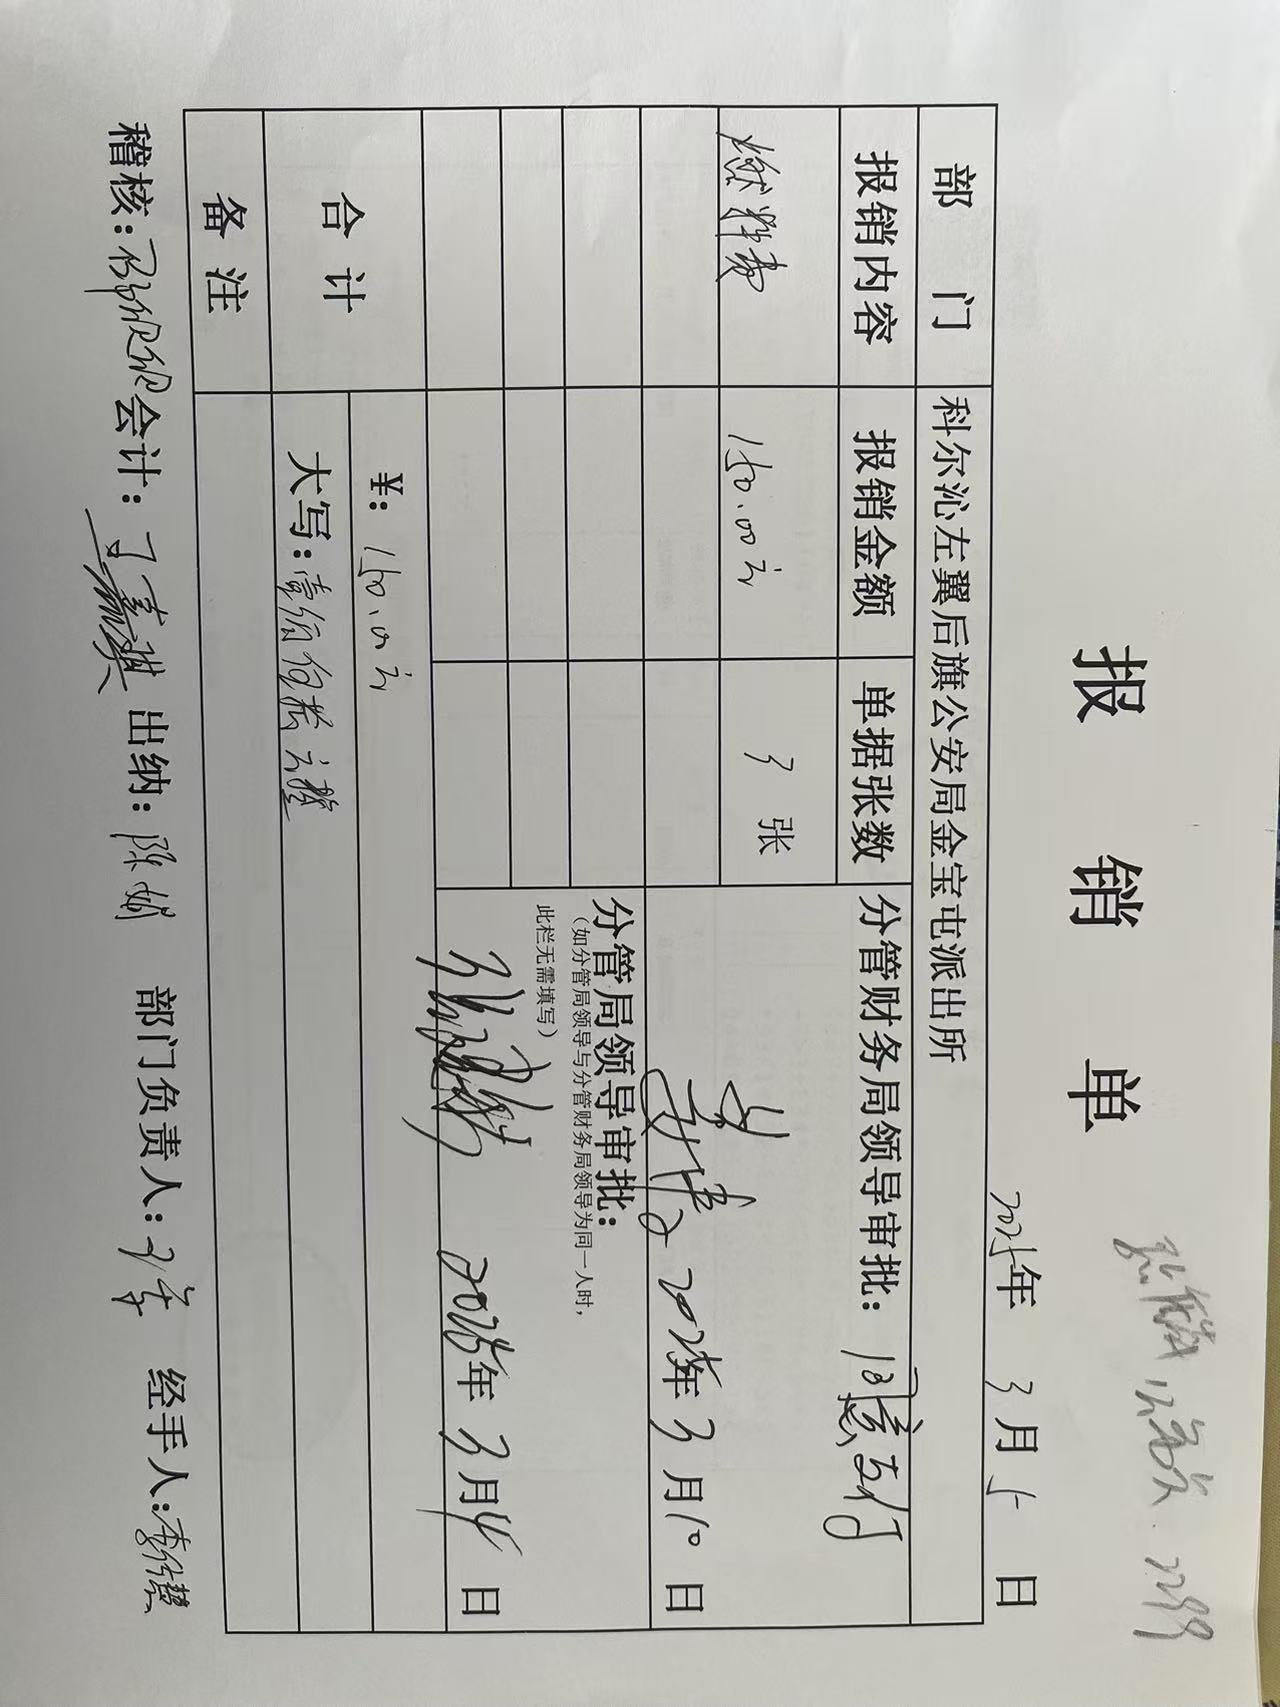 报 销 单
2025年 3月 5日
部 门 科尔沁左翼后旗公安局金宝屯派出所
报销内容 报销金额 单据张数 分管财务局领导审批:同意支付
燃料费 150.00元 3 张
2025年3月10日
分管局领导审批:
(如分管局领导与分管财务局领导为同一人时,
此栏无需填写)
2025年3月4日
合 计 ¥: 150.00元
大写:壹佰伍拾元整
备 注
稽核: 会计:丁嘉琪 出纳:陈娟 部门负责人: 经手人: